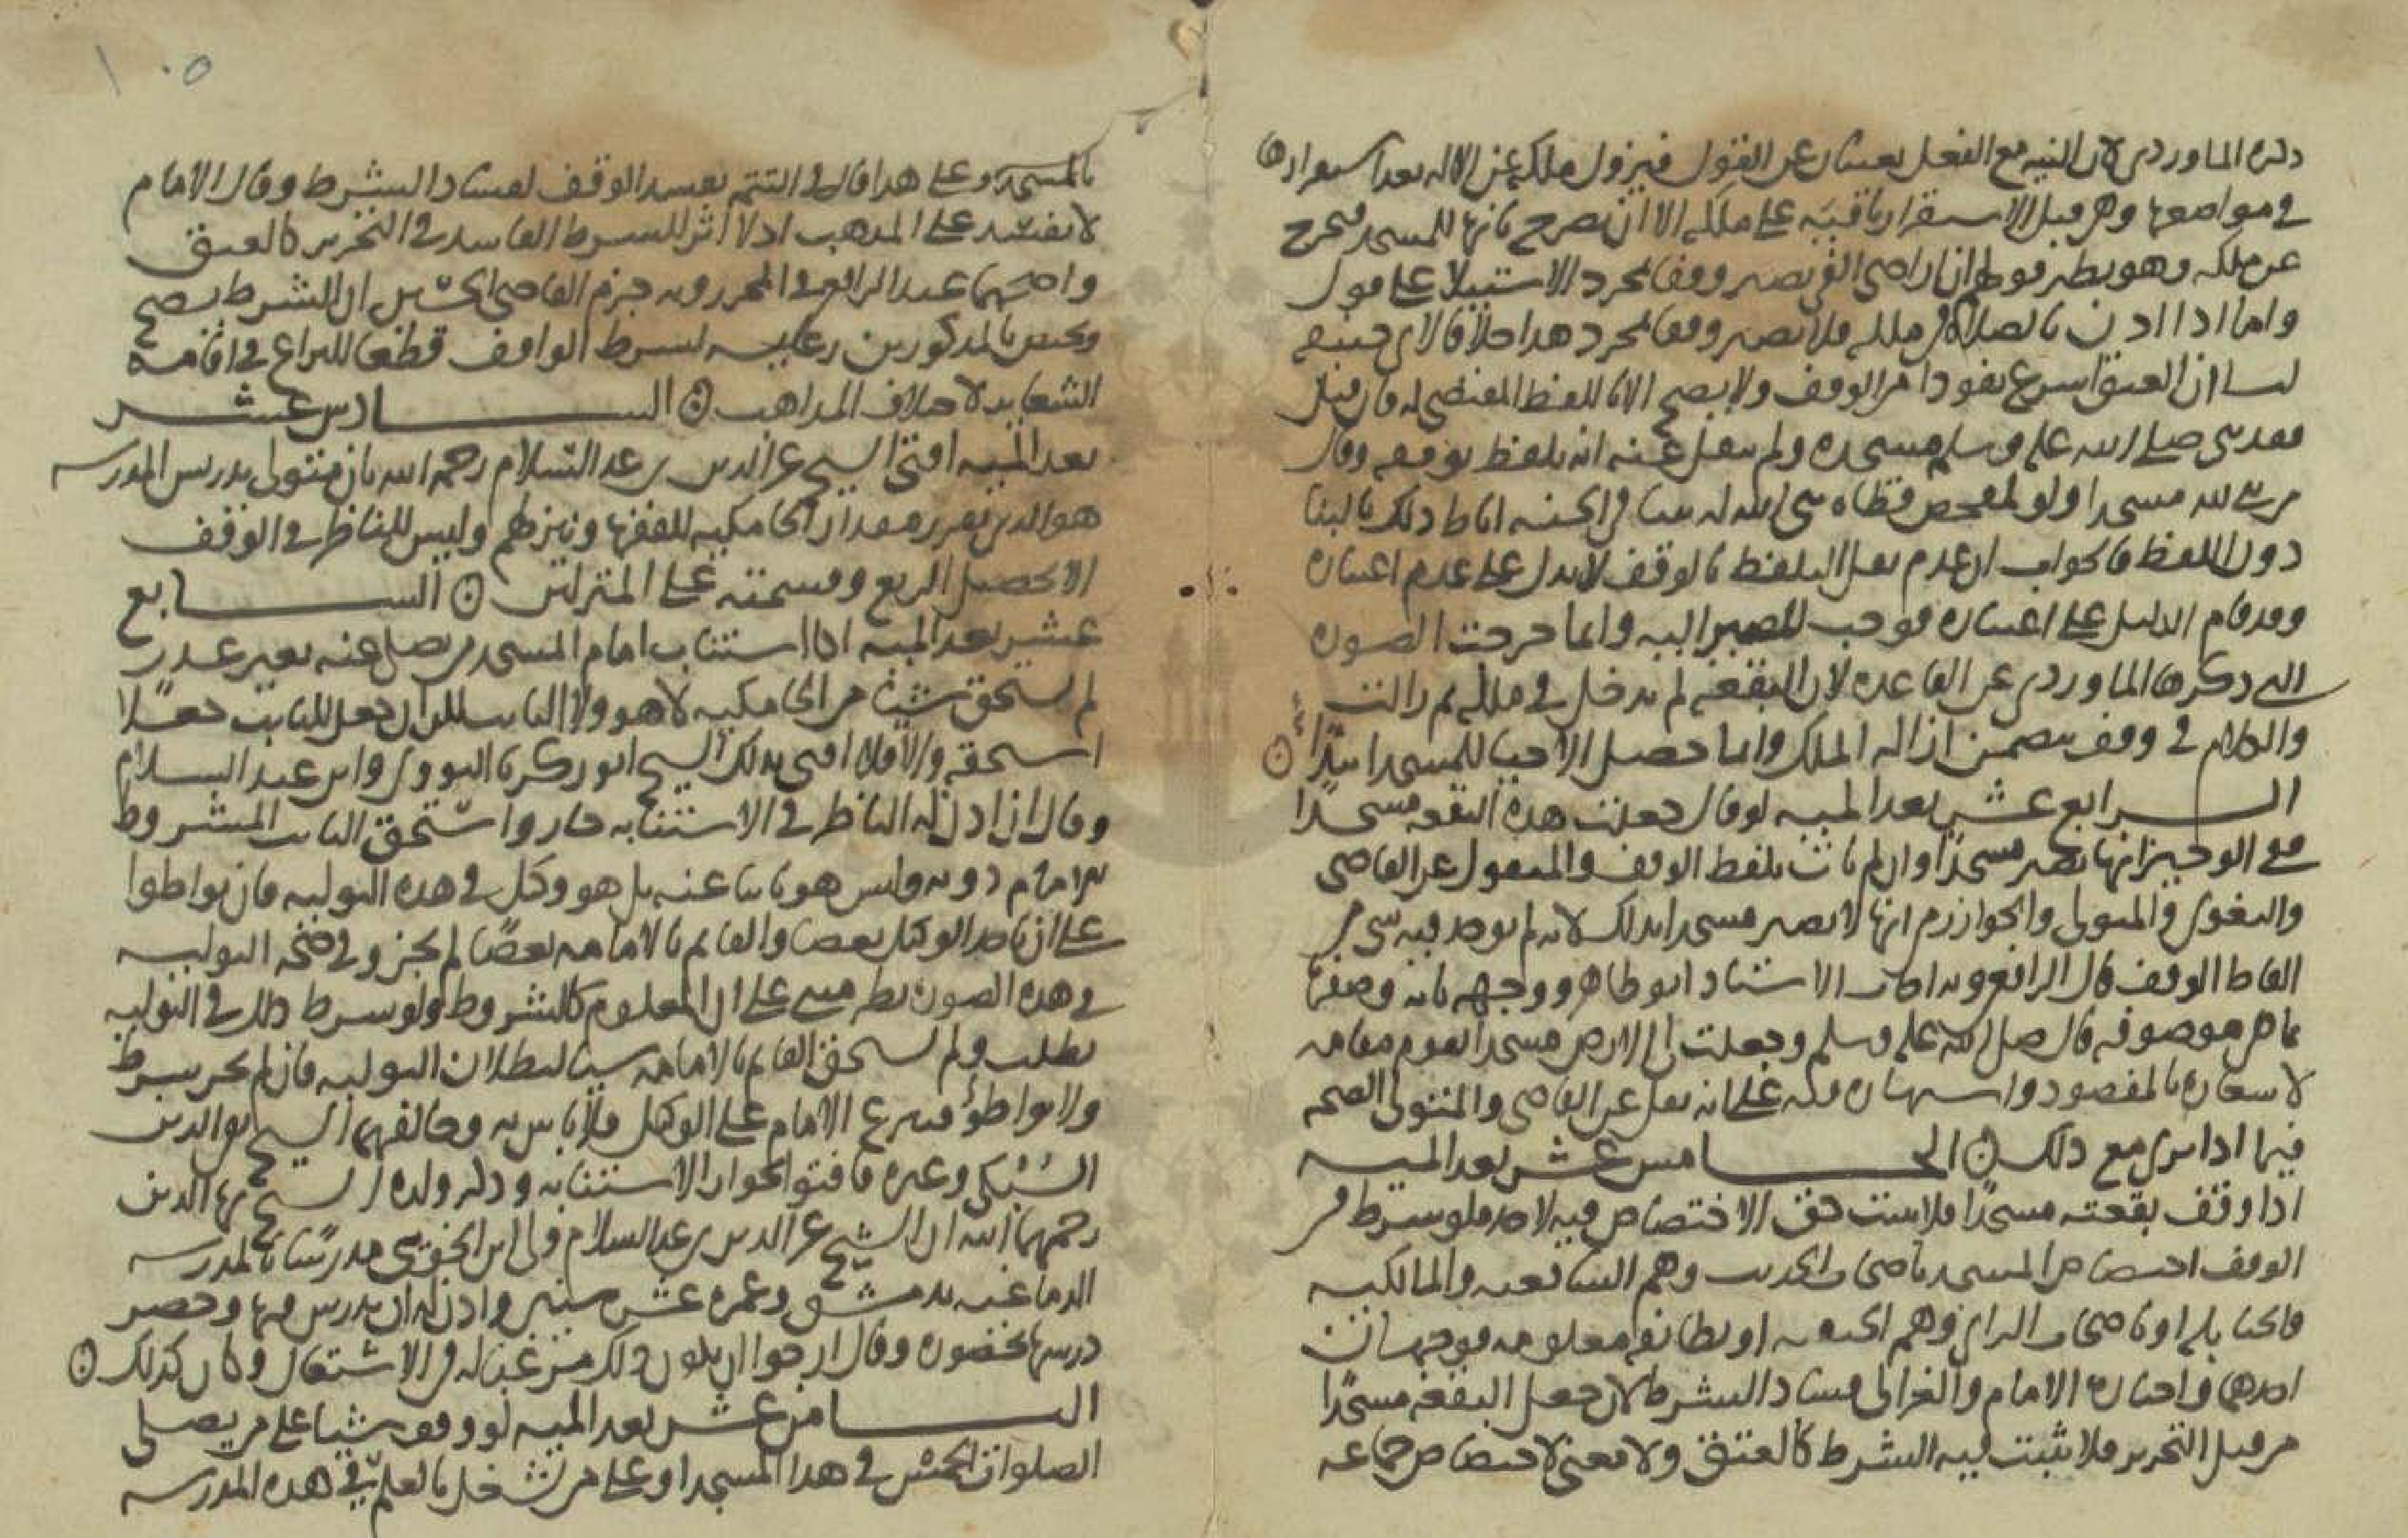 ذكره الماوردي لان النيه مع الفعل يغنيان عن القول فيزول ملكه عن الاله بعد استقرارها
في مواضعها وهي قبل الاستقرار باقية على ملكه الا ان يصرح بانها للمسجد فتخرج
عن ملكه وهو نظير قولهم ان اراضي الفي تصير وقفا بمجرد الاستيلا على قول
واما اذا اذن بالصلاة في ملكه فلا يصير وقفا بمجرد هذا خلافا لابي حنيفه
لنا ان العتق اسرع نفوذا من الوقف ولا يصح الا باللفظ المقتضي له فان قيل
فقد بنى صلى الله عليه وسلم مسجده ولم ينقل عنه انه تلفظ بوقفه وقال
من بنى لله مسجدا ولو كمفحص قطاه بنى الله له بيتا في الجنه اناط ذلك بالبنا
دون اللفظ فالجواب ان عدم نقل التلفظ بالوقف لا يدل على عدم اعتباره
وقد قام الدليل على اعتباره فوجب المصير اليه وانما خرجت الصوره
التي ذكرها الماوردي عن القاعده لان البقعه لم تدخل في ملكه ثم زالت
والكلام في وقف يتضمن ازاله الملك وانما حصل الاحيا للمسجد ابتداءً
الرابع عشر بعد الميه لو قال جعلت هذه البقعه مسجدًا
ففي الوجيز انها تصير مسجدًا وان لم يات بلفظ الوقف والمنقول عن القاضي
والبغوي والمتولي والخوارزم انها لا تصير مسجدا بذلك لانه لم يوجد فيه شي من
الفاظ الوقف قال الرافعي وبه اجاب الاستاد ابو طاهر ووجهه بانه وصفها
بما هي موصوفه قال صلى الله عليه وسلم وجعلت لي الارض مسجدا
لاشعاره بالمقصود واشتهاره فيه على انه نقل عن القاضي والمتولي الصحه
فيها اذا نوى مع ذلك الخامس عشر بعد الميه
اذا وقف بقعته مسجدًا فلا يثبت حق الاختصاص فيه لاحد فلو شرط في
الوقف اختصاص المسجد باصحاب الحديث وهم الشافعيه والمالكيه
والحنابله او باصحاب الراي وهم الحنفيه او بطائفه معلومه فوجهان
احدهما واختاره الامام والغزالي فساد الشرط لان جعل البقعه مسجدًا
من قبيل التحرير فلا يثبت فيه الشرط كالعتق ولا معنى لاختصاص جماعه
١٠٥
بالمسجد وعلى هذا قال في التتمه يفسد الوقف لفساد الشرط وقال الامام
لا يفسد على المذهب اذ لا اثر للشرط الفاسد في التحرير كالعتق
واصحهما عند الرافعي في المحرر وبه جزم القاضي الحسين ان الشرط يصح
ويختص بالمذكورين رعاية لشرط الواقف قطعا للنزاع في اقامه
الشعاير لاختلاف المذاهب السادس عشر
بعد الميه افتى الشيخ عز الدين بن عبد السلام رحمه الله بان متولى تدريس المدرسه
هو الذي يقرر مقدار الجامكيه للفقها وتنزلهم وليس للناظر في الوقف
الا تحصيل الريع وقسمته على المنزلين السابع
عشر بعد الميه اذا استناب امام المسجد من يصلي عنه بغير عذر
لم يستحق شيئا من الجامكيه لا هو ولا النائب لكن ان جعل للنايب جعلًا
استحقه والا فلا افتى بذلك الشيخ ابو زكريا النووي وابن عبد السلام
وقال ان اذن له الناظر في الاستنابه جاز واستحق النايب المشروط
دونه وليس هو نايبا عنه بل هو وكيل في هذه التوليه فان تواطوا
على ان ياخذ الوكيل بعضا والقايم بالامامه بعضًا لم يجز وفي صحه التوليه
في هذه الصوره نظر مبني على ان المعلوم كالمشروط ولو شرط ذلك في التوليه
بطلت ولم يستحق القايم بالامامه شيئا لبطلان التوليه فان لم يجر شرط
ولا تواطؤ فتبرع الامام على الوكيل فلا باس به وخالفهما الشيخ تقي الدين
السُبكي وغيره فافتوا بجواز الاستنابه وذكر ولده الشيخ بها الدين
رحمهما الله ان الشيخ عز الدين بن عبد السلام ولى ابن مدرسًا بالمدرسه
الدماغيه بدمشق وعمره عشر سنين واذن له ان يدرس فيها وحضر
درسها بحضوره وقال ارجوا ان يكون ذلك مرغبا له في الاشتغال وكان كذلك
الثامن عشر بعد الميه لو وقف شيا على من يصلي
الصلوات الخمس في هذا المسجد او على من يشتغل بالعلم في هذه المدرسه